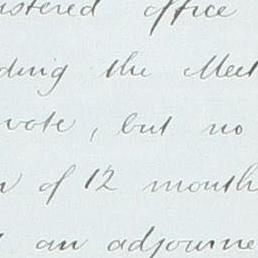 istered office
ding the Meet
vote, but no
of 12 month
an adjourne